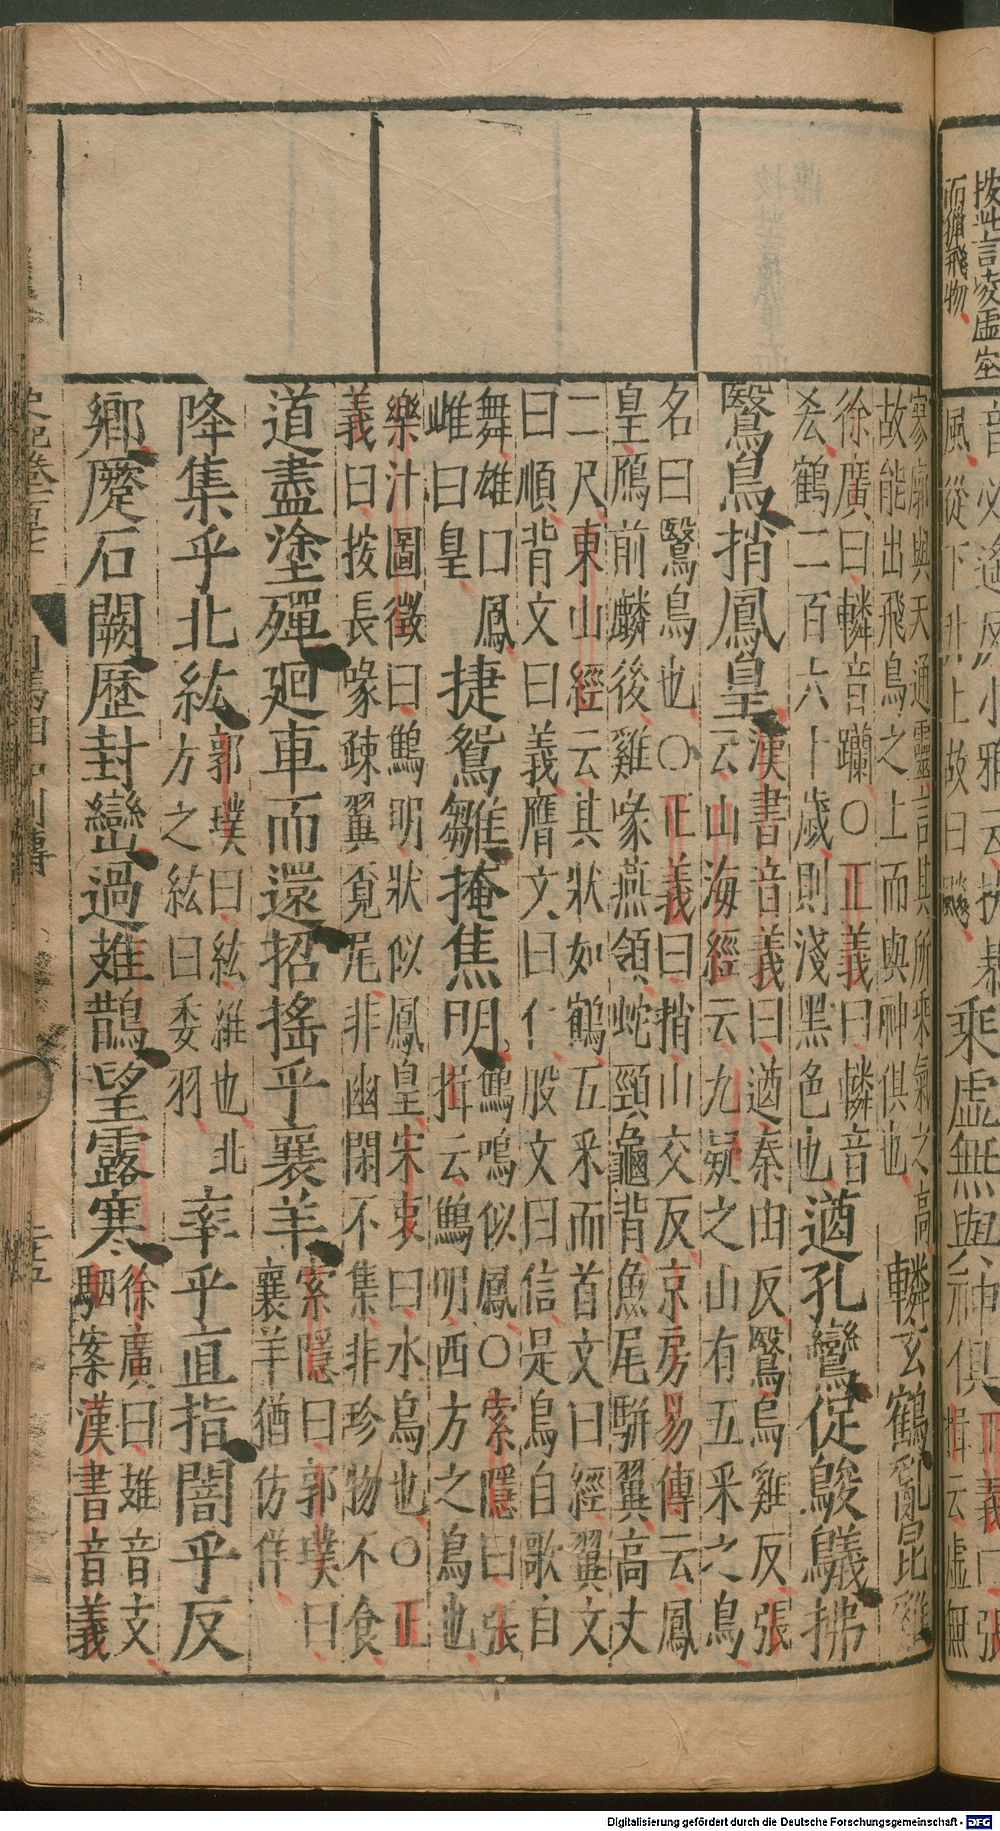 寥廓與天通靈言其所乘氣之高
故能出飛鳥之上而與神俱也
轔玄鶴亂昆雞
徐廣曰轔音躪○正義曰轔音
鶴二百六十歲則淺黑色也
遒孔鸞促鵔鸃拂
鷖鳥捎鳳皇
漢書音義曰遒秦由反鷖烏雞反張
云山海經云九疑之山有五采之鳥
名曰鷖鳥也○正義曰捎山交反京房易傳云鳳
皇鴈前麟後雞喙燕頷蛇頸龜背魚尾駢翼高丈
二尺東山經云其狀如鶴五采而首文曰經翼文
曰順背文曰義膺文曰仁股文曰信是鳥自歌自
舞雄曰鳳
雌曰皇
捷鴛雛掩焦明
鷦鳴似鳳○索隱曰張
揖云鷦明西方之鳥也
樂汁圖徵曰鷦明狀似鳳皇宋衷曰水鳥也○正
義曰按長喙疎翼員尾非幽閑不集非珍物不食
道盡塗殫廻車而還招搖乎襄羊
索隱曰郭璞曰
襄羊猶仿佯
降集乎北紘
郭璞曰紘維也北
方之紘曰委羽
率乎直指闇乎反
鄉蹷石闕歷封巒過鳷鵲望露寒
徐廣曰鳷音支
駰案漢書音義
按此言凌虛空
風從下升上故曰飇
乘虛無與神俱
正義曰張
揖云虛無